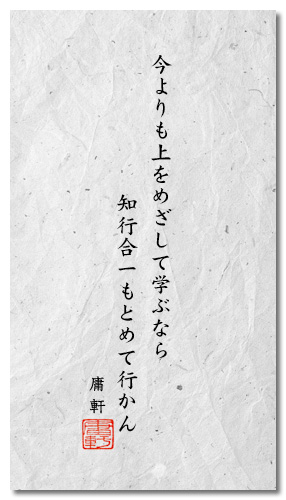 今よりも上をめざして学ぶなら
知行合一もとめて行かん
庸軒